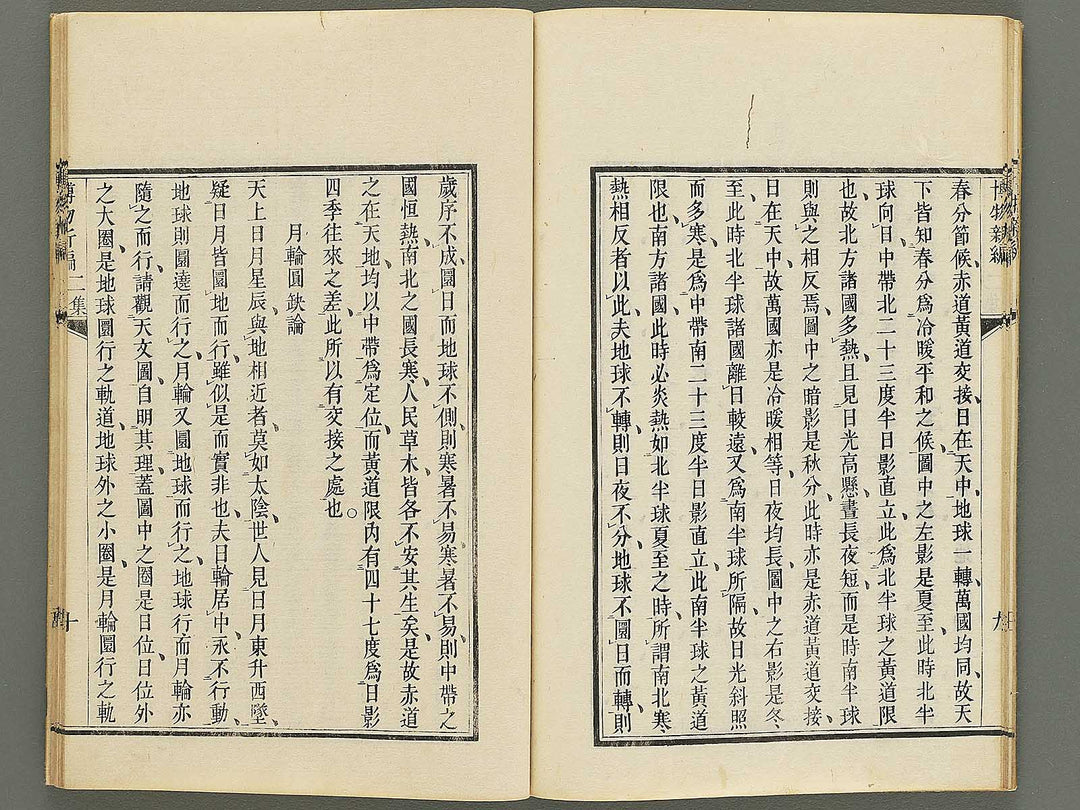 博物新編
春分節候赤道黃道交接日在天中地球一轉萬國均同故天
下皆知春分爲冷暖平和之候圖中之左影是夏至此時北半
球向日中帶北二十三度半日影直立此爲北半球之黃道限
也故北方諸國多熱且見日光高懸晝長夜短而是時南半球
則與之相反焉圖中之暗影是秋分此時亦是赤道黃道交接
日在天中故萬國亦是冷暖相等日夜均長圖中之右影是冬
至此時北半球諸國離日較遠又爲南半球所隔故日光斜照
而多寒是爲中帶南二十三度半日影直立此南半球之黃道
限也南方諸國此時必炎熱如北半球夏至之時所謂南北寒
熱相反者以此夫地球不轉則日夜不分地球不圜日而轉則
歲序不成圜日而地球不側則寒暑不易寒暑不易則中帶之
國恒熱南北之國長寒人民草木皆各不安其生矣是故赤道
之在天地均以中帶爲定位而黃道限內有四十七度爲日影
四季往來之差此所以有交接之處也
月輪圓缺論
天上日月星辰與地相近者莫如太陰世人見日月東升西墜
疑日月皆圜地而行雖似是而實非也夫日輪居中永不行動
地球則圜遶而行之月輪又圜地球而行之地球行而月輪亦
隨之而行請觀天文圖自明其理蓋圖中之圈是日位日位外
之大圈是地球圜行之軌道地球外之小圈是月輪圜行之軌
博物新編二集
十